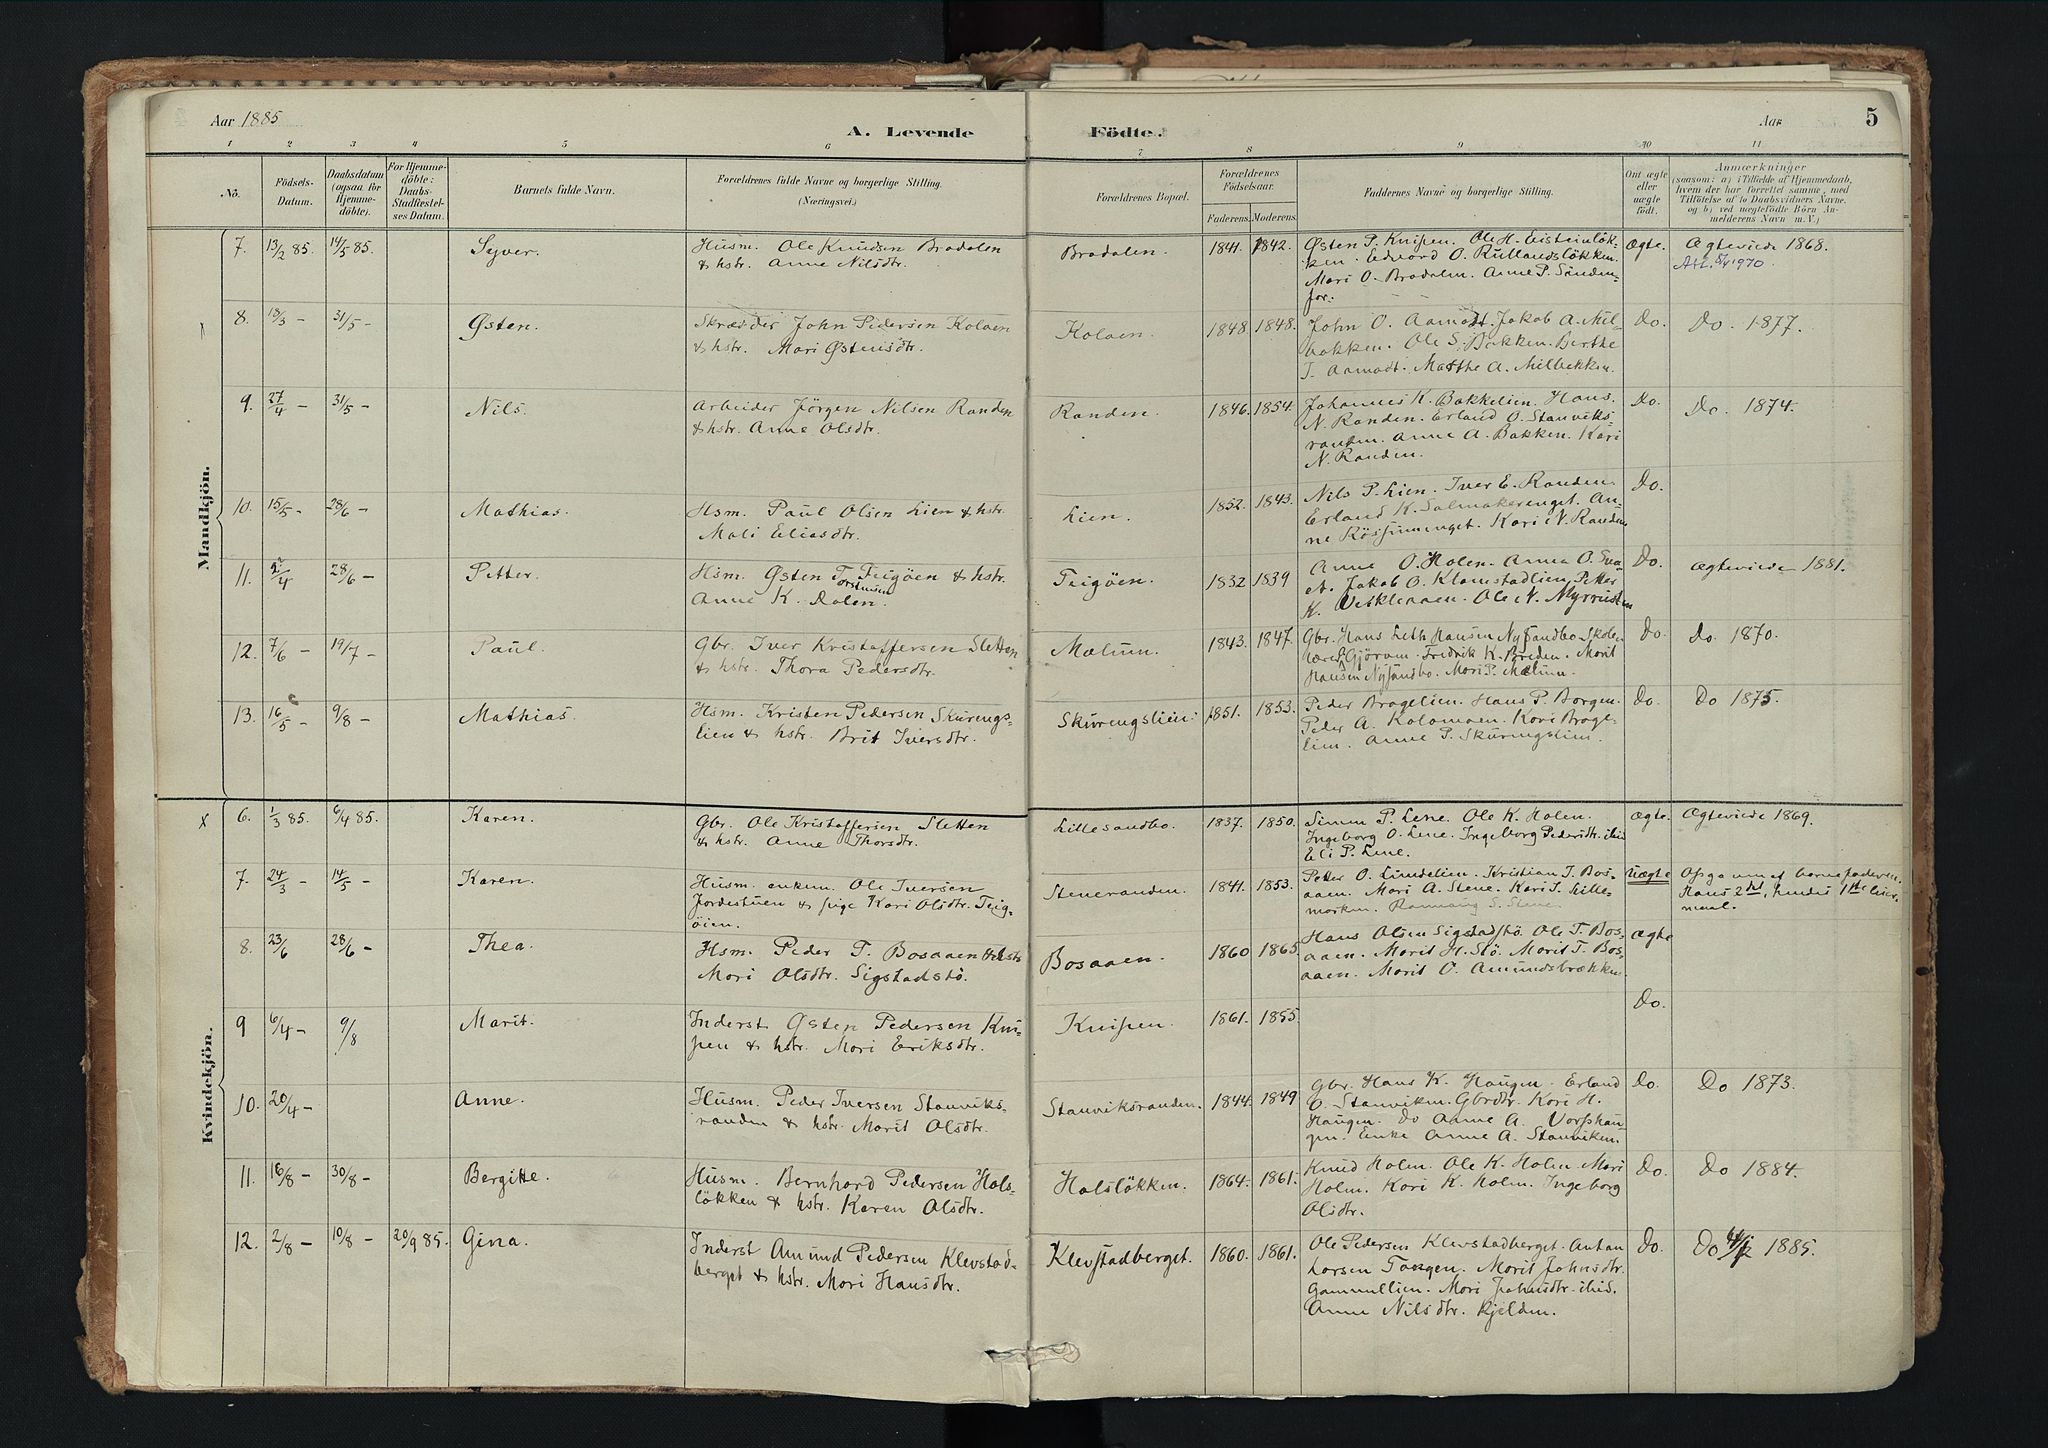 Aar 1885
A. Levende Födte.
Aar
5
1 2 3 4 5 6 7 8 9 10 11
No.
Födsels-
Datum.
Daabsdatum
(ogsaa for
Hjemme-
döbte).
For Hjemme-
döbte:
Daabs-
Stadfæstel-
ses Datum.
Barnets fulde Navn.
Forældrenes fulde Navne og borgerlige Stilling.
(Næringsvei.)
Forældrenes Bopæl.
Forældrenes
Födselsaar.
Faderens. Moderens.
Faddernes Navne og borgerlige Stilling.
Om ægte
eller
uægte
födt.
Anmærkninger
(saasom: a) i Tilfælde af Hjemmedaab,
hvem der har forrettet samme, med
Tilföielse af to Daabsvidners Navne,
og b) ved uægtefödte Börn An-
melderens Navn m. V.)
Mandkjön.
7. 13/2 85. 14/5 85. Syver. Husm. Ole Knudsen Bradalen
& hstr. Anne Nilsdtr.
Bradalen. 1841. 1842. Østen P. Knipen. Ole H. Eisteinløk-
ken. Edvard O. Rullandsløkken.
Mari O. Bradalen. Anne P. Sanden-
for.
Ægte. Ægteviede 1868.
Att. 8/4 1970.
8. 18/3 - 31/5 - Østen. Skrædder John Pedersen Kolaen
& hstr. Mari Østensdtr.
Kolaen. 1848. 1848. John O. Aamodt. Jakob A. Mil-
bakken. Ole S. Bakken. Berthe
J. Aamodt. Marthe A. Milbakken.
Do. Do. 1877.
9. 27/4 - 31/5 - Nils. Arbeider Jörgen Nilsen Randen
& hstr. Anne Olsdtr.
Randen. 1846. 1854. Johannes K. Bakkelien. Hans
N. Randen. Erland O. Stanviks-
randen. Anne A. Bakken. Kari
N. Randen.
Do. Do. 1874.
10. 15/5 - 28/6 - Mathias. Hsm. Paul Olsen Lien & hstr.
Mali Eliasdtr.
Lien. 1852. 1843. Nils P. Lien. Iver E. Randen.
Erland K. Salmakerenget. An-
ne Kari N. Randen
Do.
11. 2/4 28/6 - Petter. Hsm. Østen T. Teigöen & hstr.
Torstensen
Anne K. Dalen.
Teigöen. 1832 1839 Anne O. Holen. Anne O.
Jakob O. Klomstadlien. Petter
K. Ole N. Myrrusten
Do. Ægteviede 1881.
12. 7/6 - 19/7 - Paul. Gbr. Iver Kristoffersen Sletten
& hstr. Thora Pedersdtr.
Mælum. 1843. 1847. Gbr. Hans Leth Hansen Nysandbo. Skole-
lærer Gjörum. Fredrik K. Breden. Marit
Hansen Nysandbo. Mari P. Mælum.
Do. Do. 1870.
13. 16/5 - 9/8 - Mathias. Hsm. Kristen Pedersen Skurengs-
lien & hstr. Brit Iversdtr.
Skurengslien. 1851. 1853. Peder Bragelien. Hans P. Borgen.
Peder A. Kolomoen. Kari Brage-
lien. Anne P. Skurengslien.
Do. Do 1875.
Kvindekjön.
6. 1/3 85. 6/4 85. Karen. Gbr. Ole Kristoffersen Sletten
& hstr. Anne Thorsdtr.
Lillesandbo. 1837. 1850. Simen P. Lene. Ole K. Holen.
Ingeborg O. Lene. Ingeborg Pedersdtr. ibid
Eli P. Lene.
Ægte. Ægteviede 1869.
7. 24/3 - 14/5 - Karen. Husm. enkem. Ole Iversen
Jordestuen & pige Kari Olsdtr. Teig-
öien.
Steneranden. 1841. 1853. Peter O. Lundelien. Kristian J. Bos-
aaen. Mari A. Stene. Kari J. Lille-
morken. Rannaug S. Stene.
Uægte Opg. am af barnefaderen.
Hans 2det, hendes 1ste leier-
maal.
8. 23/6 28/6 - Thea. Hsm. Peder T. Bosaaen & hstr
Mari Olsdtr. Sigstadstö.
Bosaaen. 1860 1865 Hans Olsen Sigstadstö. Ole T. Bos-
aaen. Marit H. Stö. Marit T. Bos-
aaen. Marit O. Amundsbrækken.
Ægte
9 6/4 - 9/8 Marit. Inderst Østen Pedersen Kni-
pen & hstr. Mari Eriksdtr.
Knipen. 1861. 1855.
Do.
10. 20/4 - Anne. Husm. Peder Iversen Stanviks-
randen & hstr. Marit Olsdtr.
Stanviksranden. 1844. 1849 Gbr. Hans K. Haugen. Erland
O. Stanviken. Gbrdtr. Kari H.
Haugen. Do Anne A. Vorphau-
gen. Enke Anne A. Stanviken.
Do. Do 1873.
11. 16/8 - 30/8 - Bergitte. Husm. Bernhard Pedersen Hals-
lökken & hstr. Karen Olsdtr.
Halslökken. 1864. 1861. Knud Holen. Ole K. Holen. Mari
Holen. Kari K. Holen. Ingeborg
Olsdtr.
Do. Do 1884.
12. 2/8 - 10/8 - 20/9 85. Gina. Inderst Amund Pedersen Klevstad-
berget & hstr. Mari Hansdtr.
Klevstadberget. 1860. 1861. Ole Pedersen Klevstadberget. Anton
Larsen Tangen. Marit Johnsdtr.
Gammellien. Mari Johnsdtr. ibid.
Anne Nilsdtr. Kjelden.
Do. Do 1885.